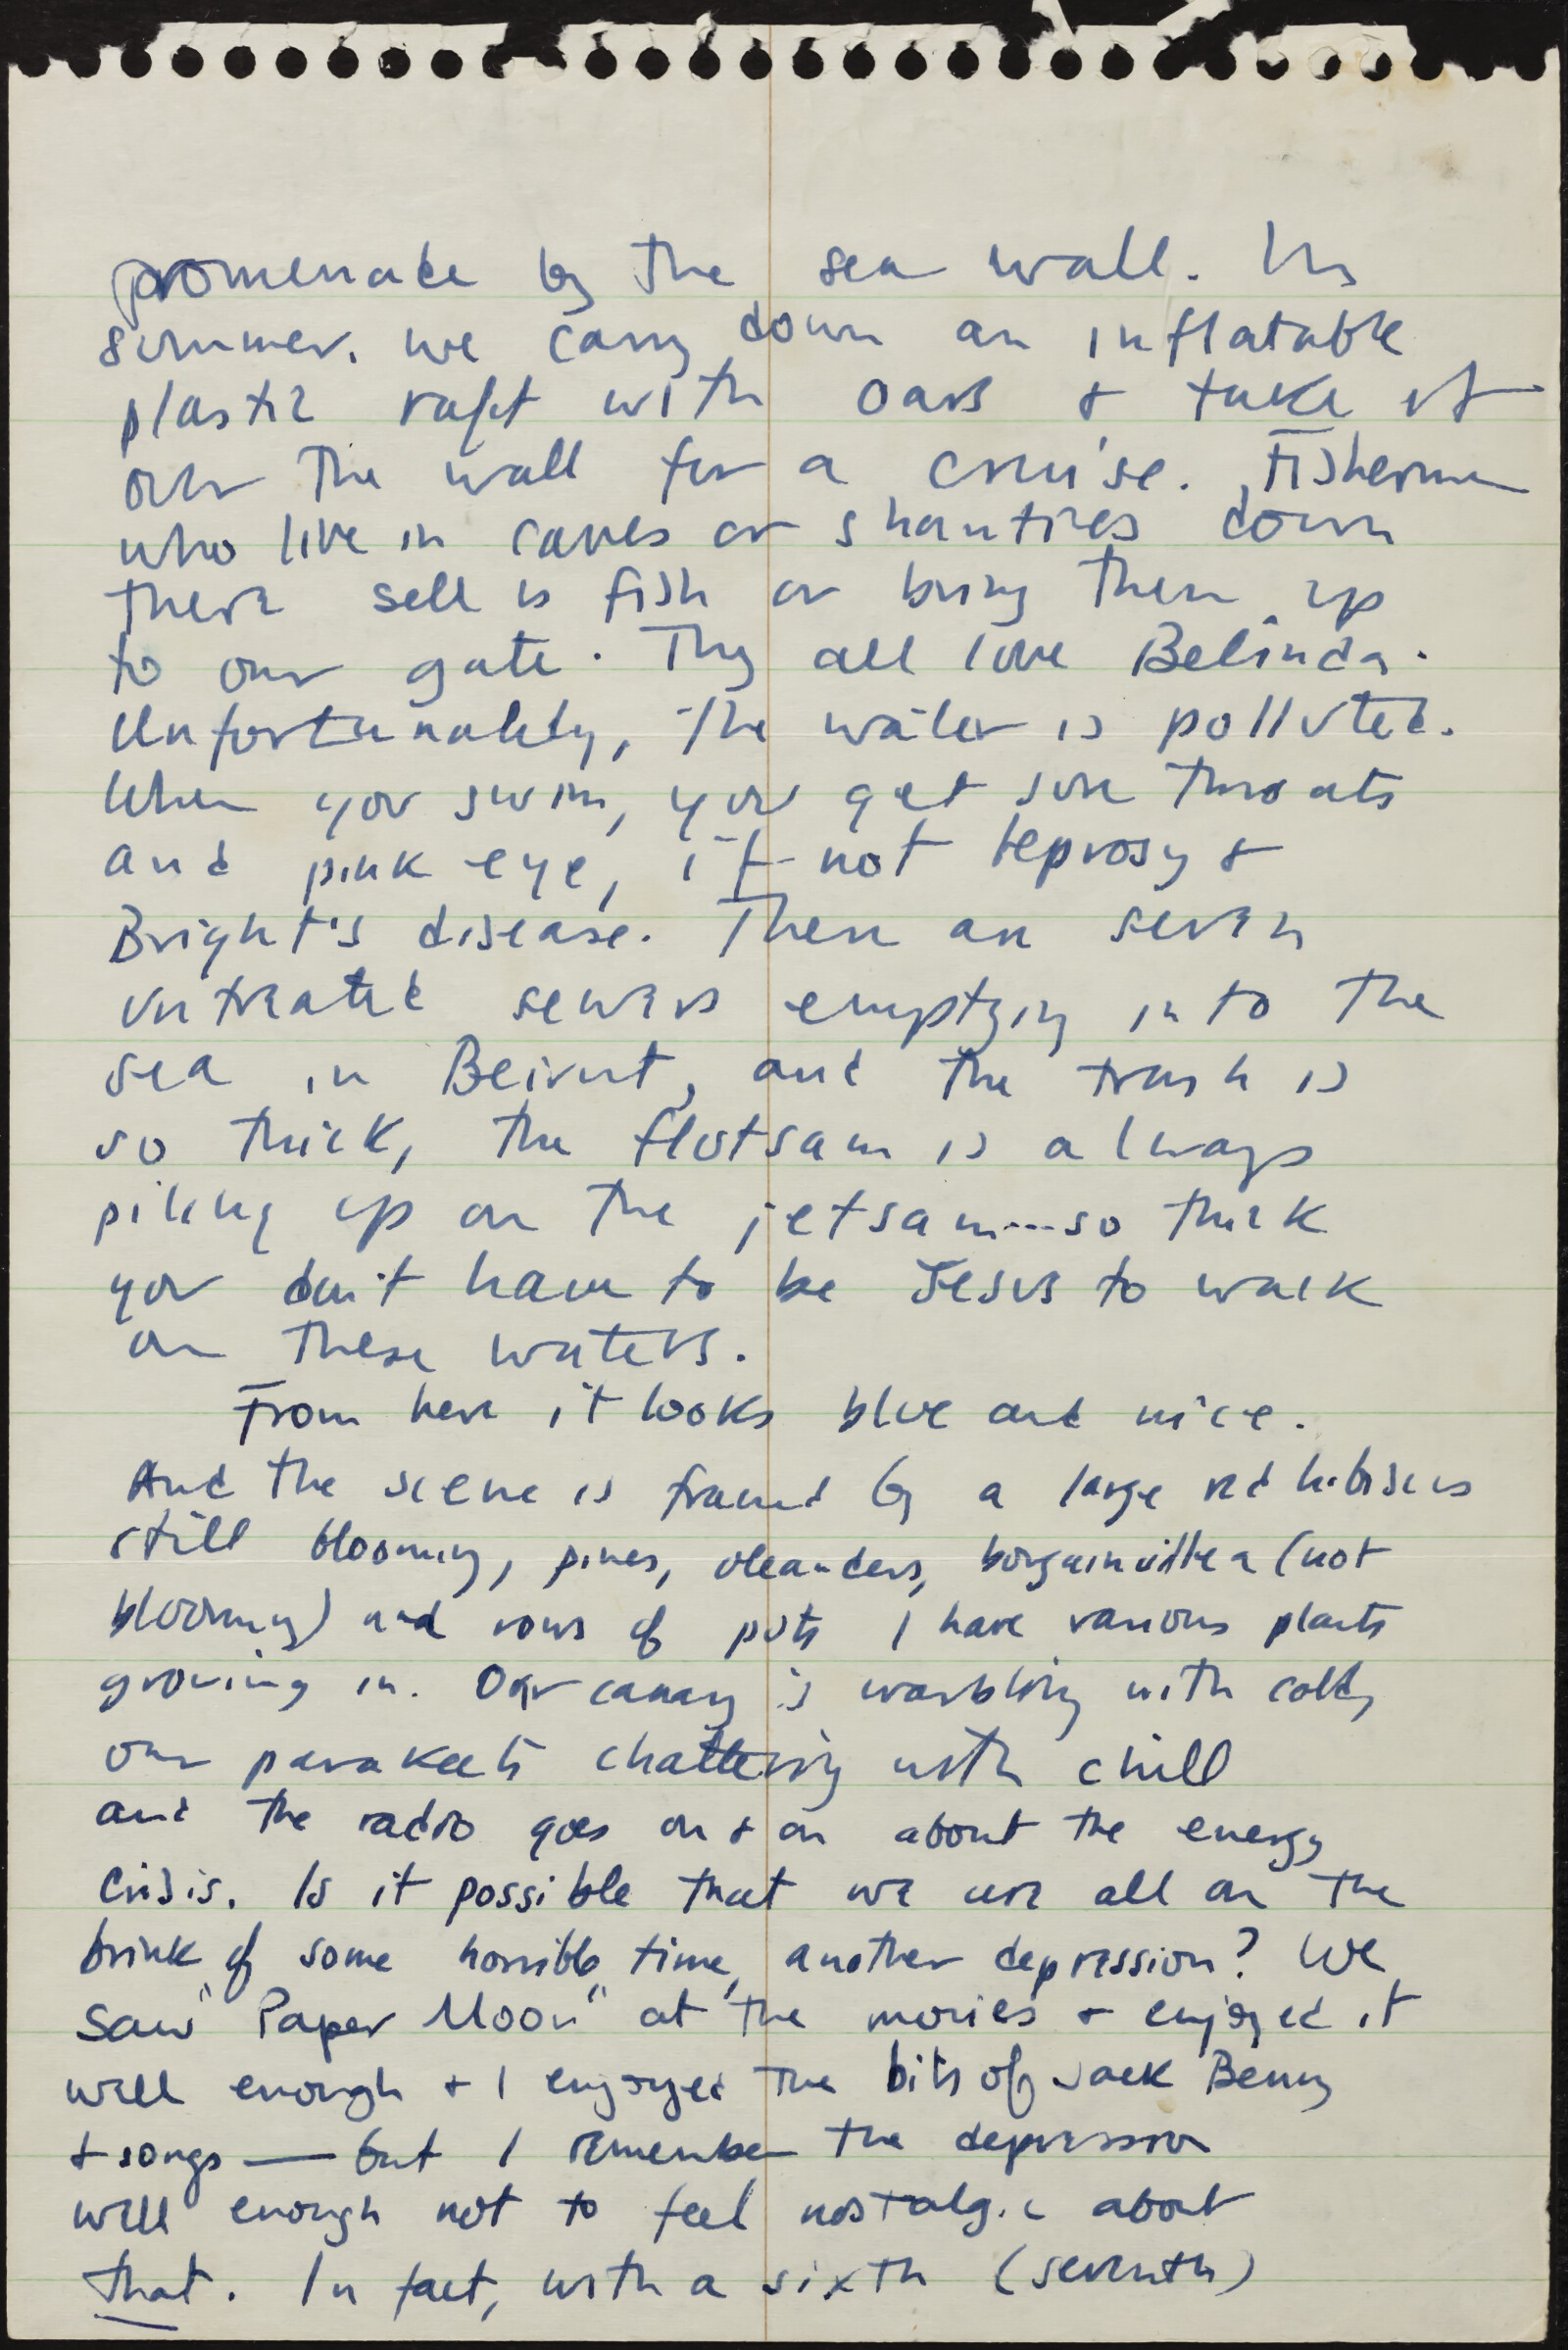 promenade by the sea wall. In
summer. we carry down an inflatable
plastic raft with oars & take it
over the wall for a cruise. Fishermen
who live in caves or shanties down
there sell us fish or bring them up
to our gate. They all love Belinda.
Unfortunately, the water is polluted.
When you swim, you get sore throats
and pink eye, if not leprosy &
Bright's disease. There are seven
untreated sewers emptying into the
sea in Beirut, and the trash is
so thick, the flotsam is always
piling up on the jetsam---so thick
you don't have to be Jesus to walk
on these waters.
From here it looks blue and nice.
And the scene is framed by a large red hibiscus
still blooming, pines, oleanders, bougainvillea (not
blooming) and rows of pots I have various plants
growing in. Our canary is warbling with cold,
our parakeets chattering with chill
and the radio goes on & on about the energy
crisis. Is it possible that we are all on the
brink of some horrible time, another depression? We
saw "Paper Moon" at the movies & enjoyed it
well enough & I enjoyed the bits of Jack Benny
& songs — but I remember the depression
well enough not to feel nostalgic about
that. In fact, with a sixth (seventh)